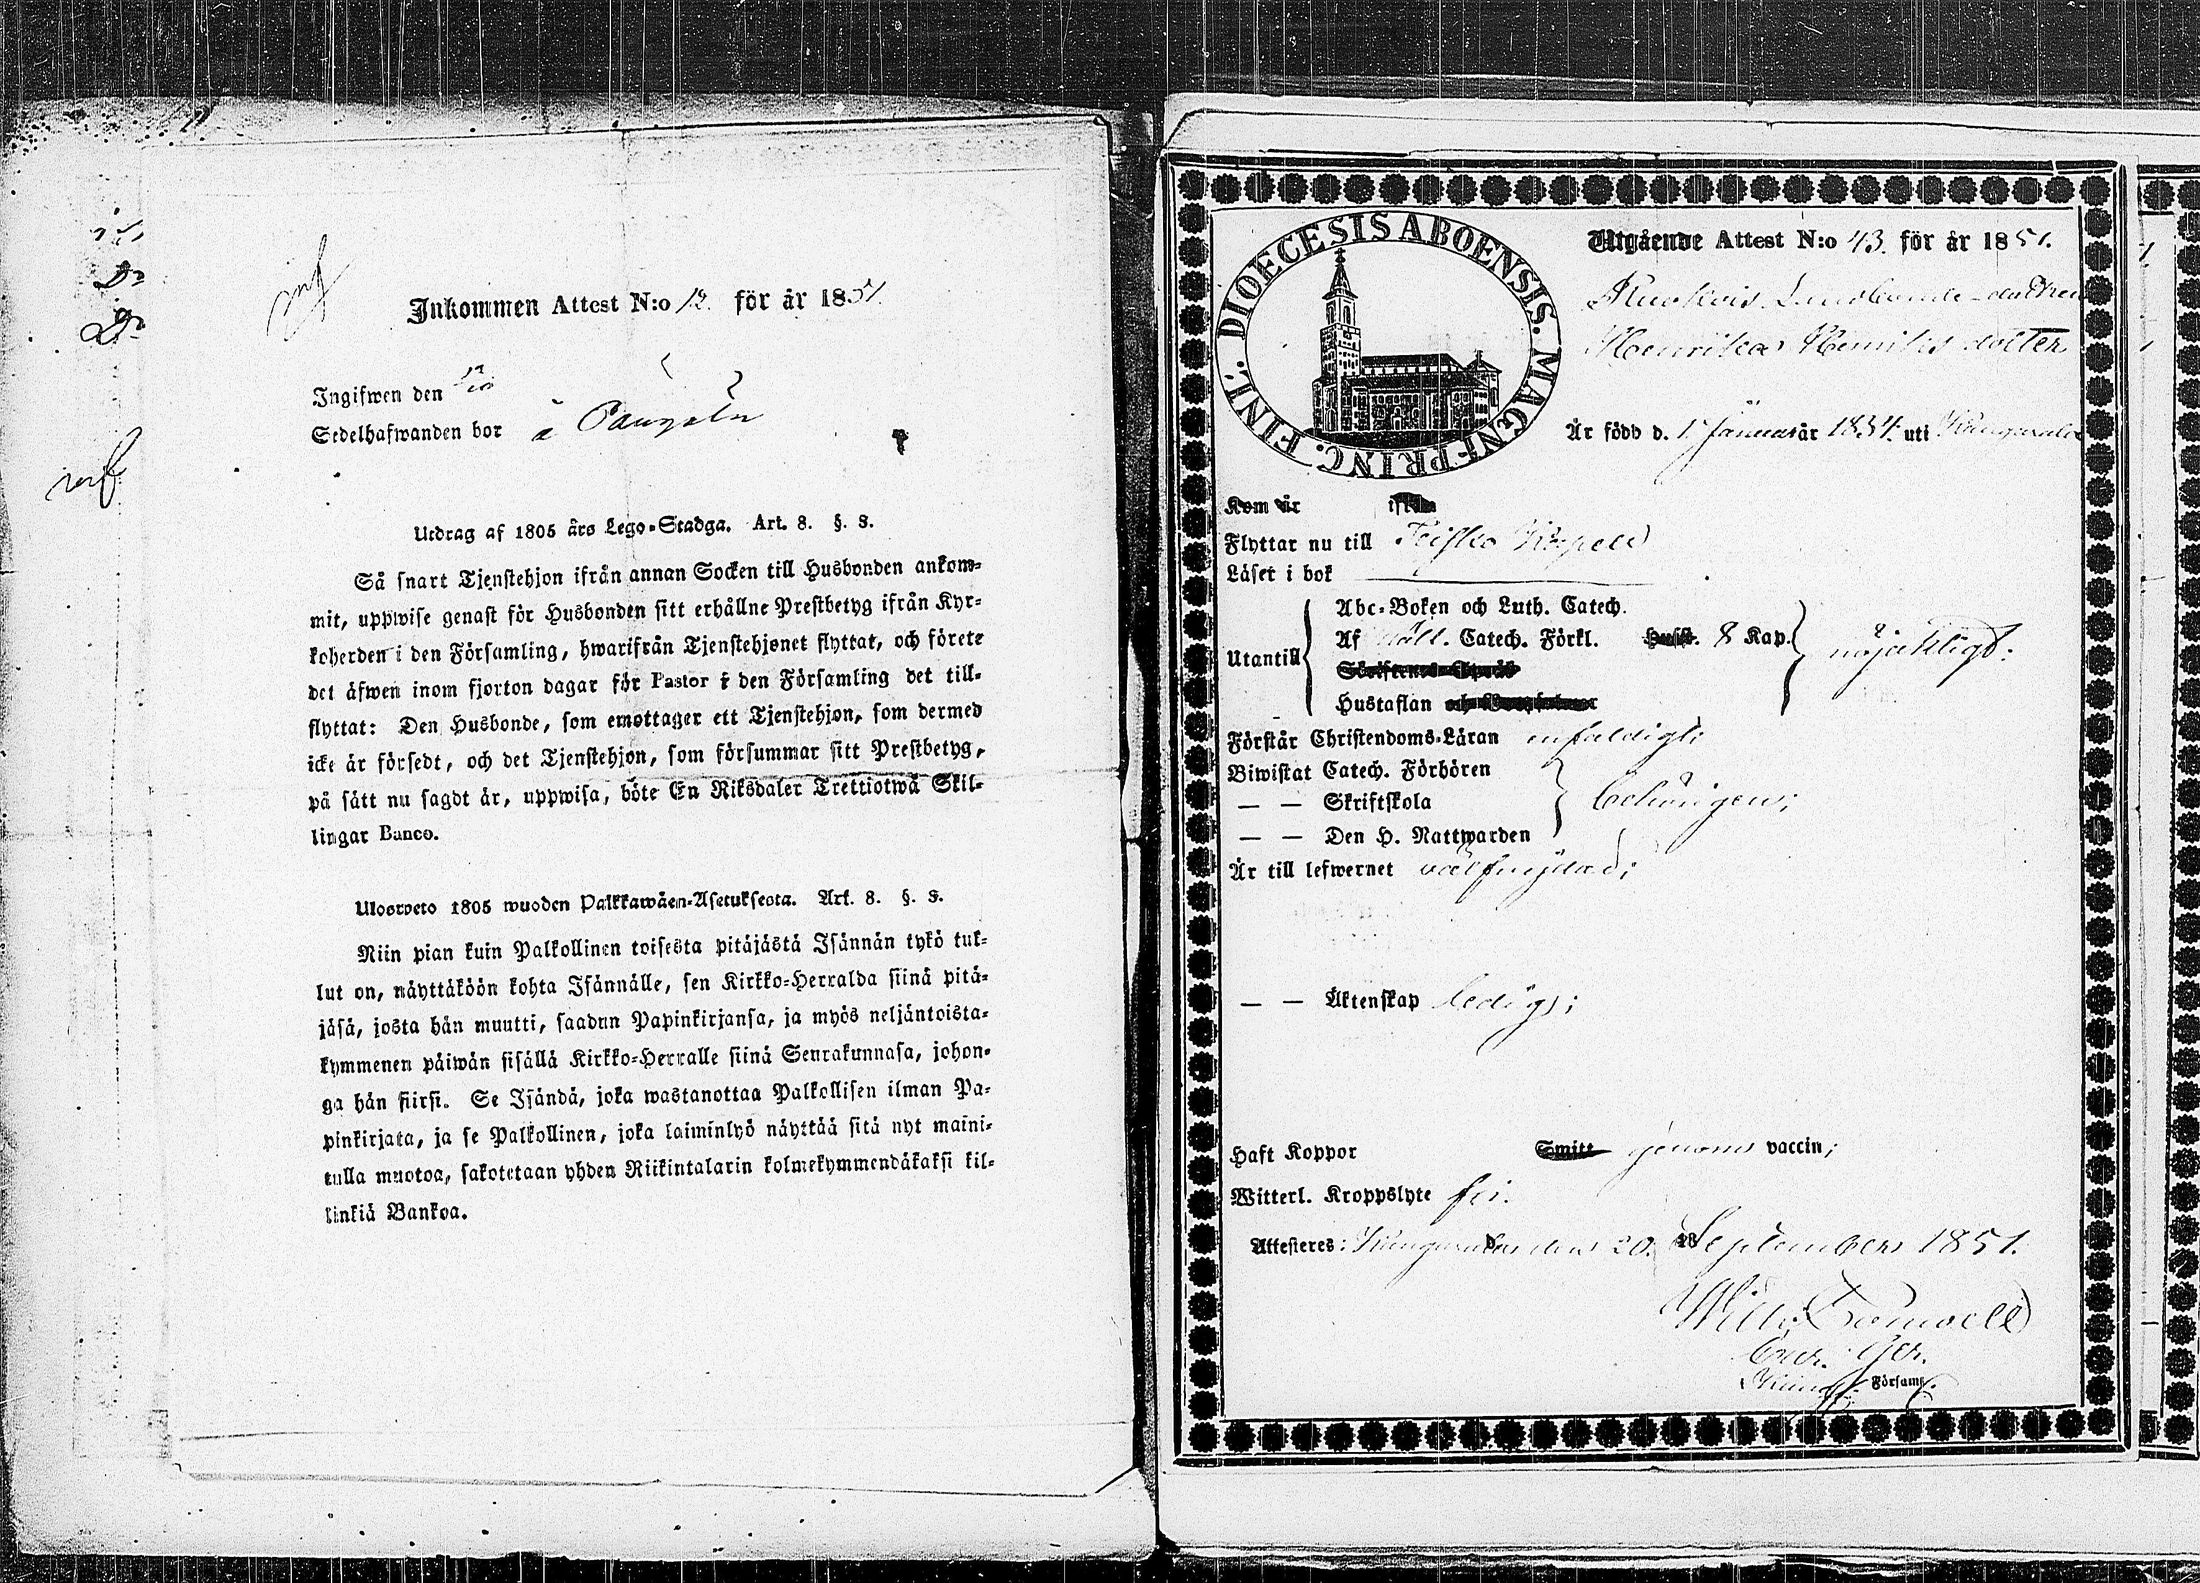 Inkommen Attest N:o 12. för år 1851.
Ingifwen den
Sedelhafwanden bor å
Utdrag af 1805 års Lego-Stadga. Art. 8. §. 8.
Så snart Tjenstehjon ifrån annan Socken till Husbonden ankom-
mit, uppwise genast för Husbonden sitt erhållne Prestbetyg ifrån Kyr-
koherden i den Församling, hwarifrån Tjenstehjonet flyttat, och förete
det äfwen inom fjorton dagar för Pastor i den Församling det till-
flyttat: Den Husbonde, som emottager ett Tjenstehjon, som dermed
icke är försedt, och det Tjenstehjon, som försummar sitt Prestbetyg,
på sätt nu sagdt är, uppwisa, böte En Riksdaler Trettiotwå Skil-
lingar Banco.
Ulosweto 1805 wuoden Palkkawäen-Asetuksesta. Art. 8. §. 8.
Niin pian kuin Palkollinen toisesta pitäjästä Isännän tykö tul-
lut on, näyttäköön kohta Isännälle, sen Kirkko-Herralda siinä pitä-
jäsä, josta hän muutti, saadun Papinkirjansa, ja myös neljäntoista-
kymmenen päiwän sisällä Kirkko-Herralle siinä Seurakunnasa, johon-
ga hän siirsi. Se Isändä, joka wastanottaa Palkollisen ilman Pa-
pinkirjata, ja se Palkollinen, joka laiminlyö näyttää sitä nyt maini-
tulla muotoa, sakotetaan yhden Riikintalarin kolmekymmendäkaksi kil-
linkiä Bankoa.
DIOECESIS ABOENSIS. MAGNI PRINC. FINL.
Utgående Attest N:o 43. för år 1851.
Henrika Henriksdotter
Är född d. 1 Januar år 1834. uti Kangasala
Kom år ifrån
Flyttar nu till Teisko Kapell
Läser i bok
Utantill
Abc-Boken och Luth. Catech.
Af Catech. Förkl. Husst. 8 Kap.
nöjaktigt.
Hustaflan
Förstår Christendoms-Läran enfaldigt;
Biwistat Catech. Förhören
— — Skriftskola behörigen;
— — Den H. Nattwarden
Är till lefwernet välfrejdad;
— — Äktenskap ledig;
Haft Koppor Smitt genom vaccin;
Witterl. Kroppslyte fri.
Attesteres: Kangasala den 20. 18 September 1851.
Församl.